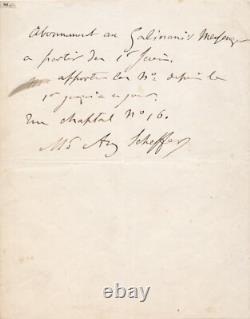 Abonnement au Galinani's Messenger
a partir du 1er
apporter les Nos depuis le
1er jusqu'a ce jour.
rue chaptal No 16.
Mr Ary Scheffer
auctionzip.fr